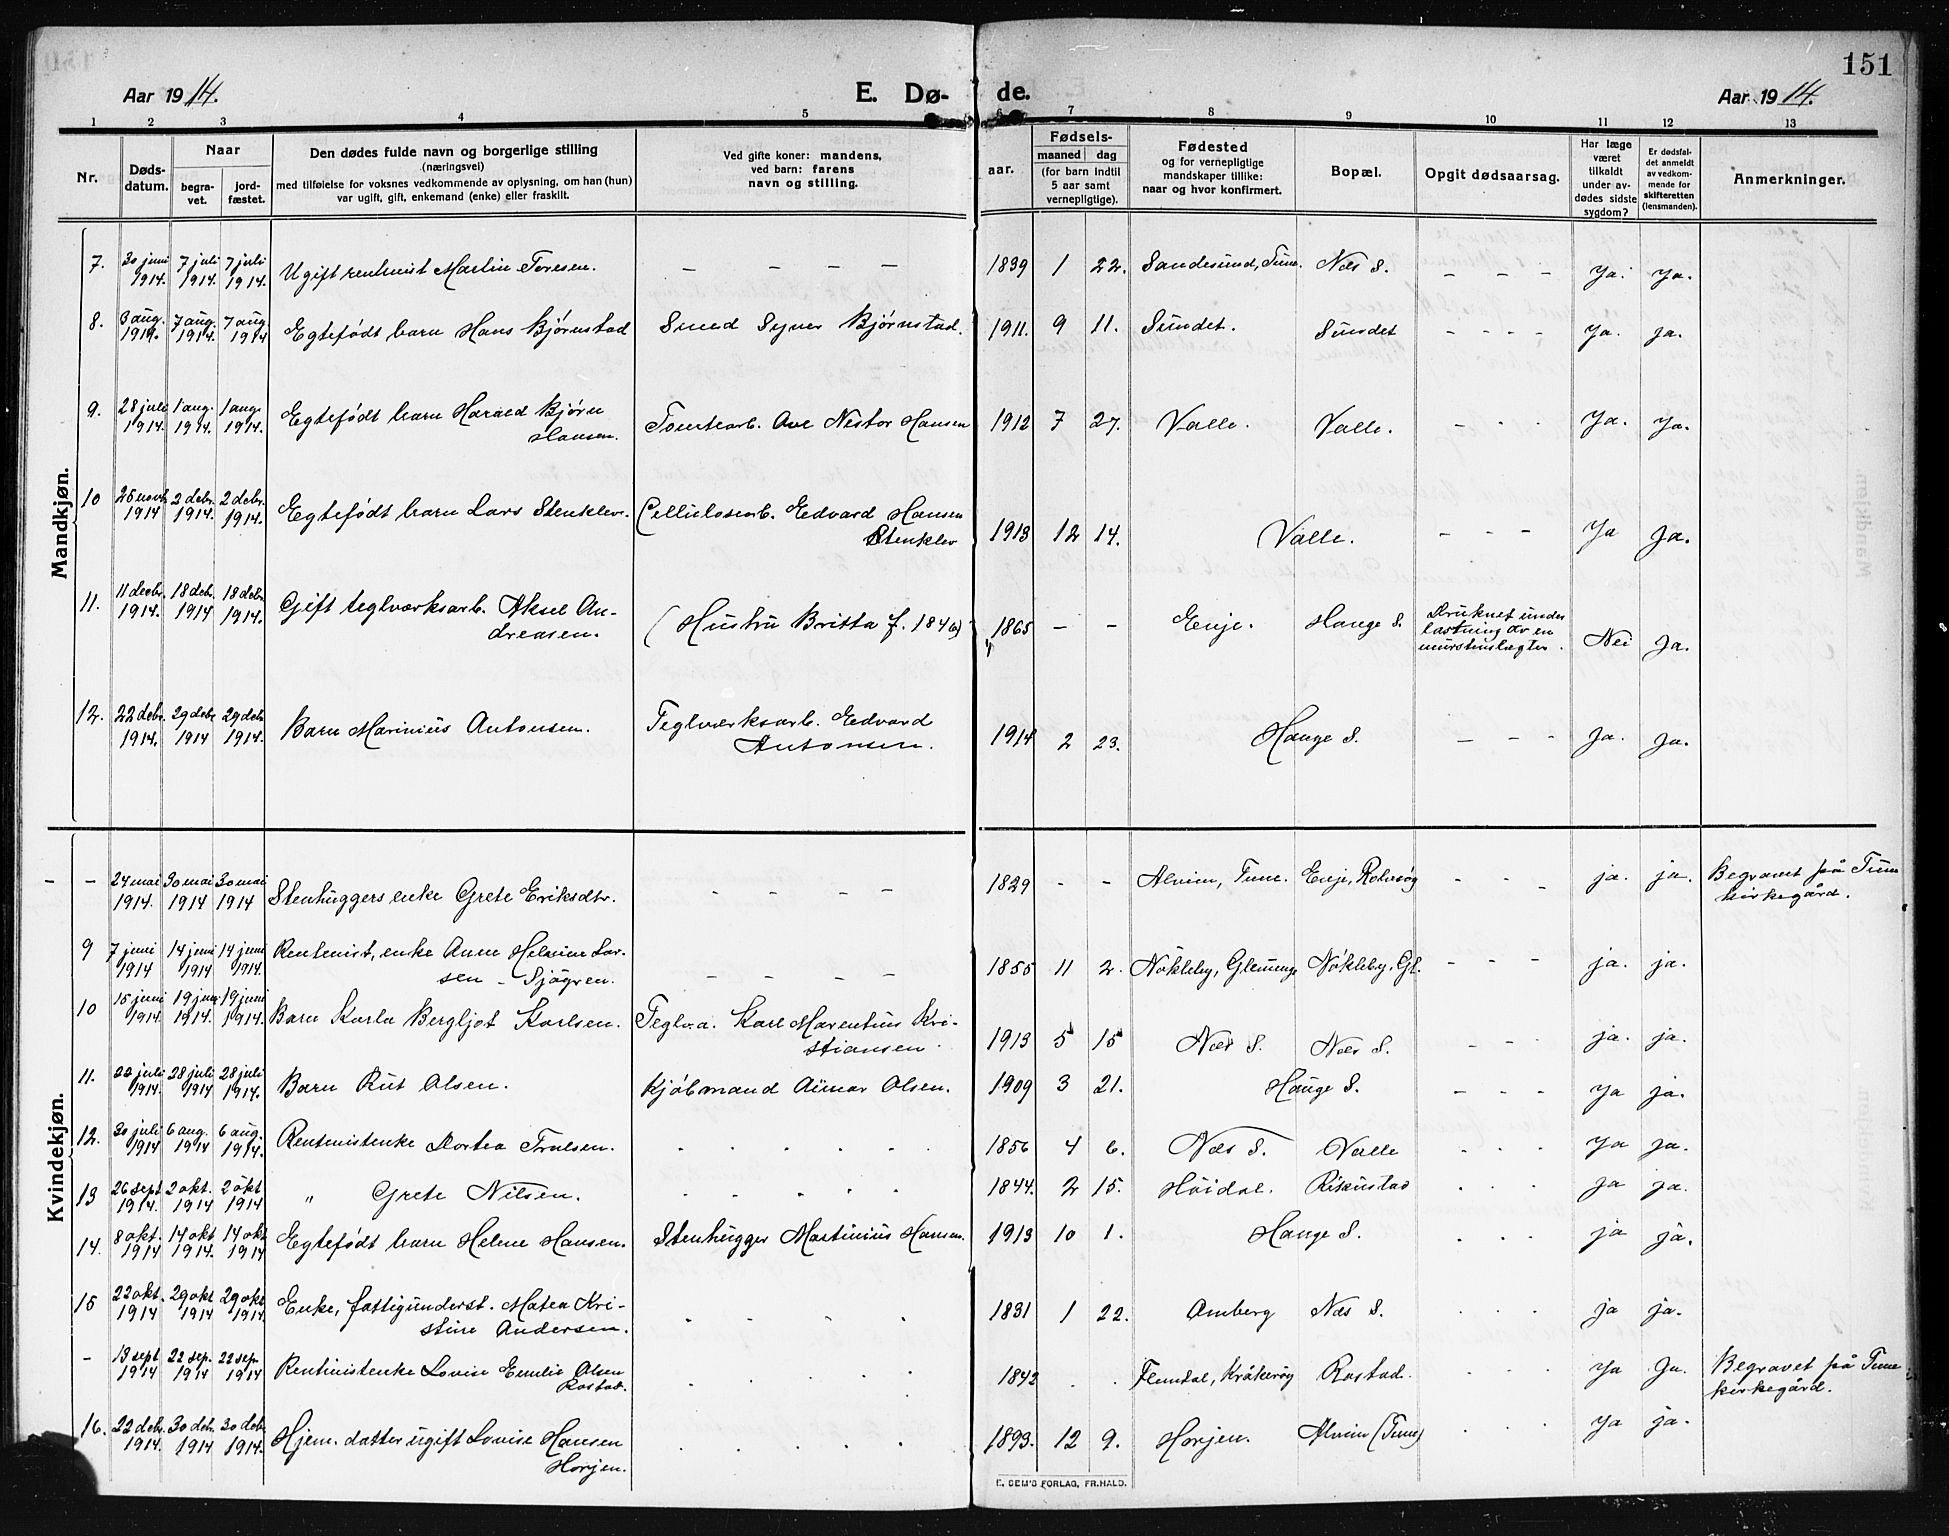 151
Aar 1914.
E. Dø-
de.
Aar 1914.
1 2 3 4 5 6 7 8 9 10 11 12 13
Nr.
Døds-
datum.
Naar
begra-
vet.
jord-
fæstet.
Den dødes fulde navn og borgerlige stilling
(næringsvei)
med tilføielse for voksnes vedkommende av oplysning, om han (hun)
var ugift, gift, enkemand (enke) eller fraskilt.
Ved gifte koner: mandens,
ved barn: farens
navn og stilling.
aar.
Fødsels-
maaned dag
(for barn indtil
5 aar samt
vernepligtige).
Fødested
og for vernepligtige
mandskaper tillike:
naar og hvor konfirmert.
Bopæl.
Opgit dødsaarsag.
Har læge
været
tilkaldt
under av-
dødes sidste
sygdom?
Er dødsfal-
det anmeldt
av vedkom-
mende for
skifteretten
(lensmanden).
Anmerkninger.
Mandkjøn.
7. 30 juni 1914. 7 juli 1914. 7 juli 1914. Ugift rentenist Martin Toresen. — — — — 1839 1 22. Sandesund, Tune. Næs S. — — — Ja. Ja.
8. 3 aug. 1914. 7 aug. 1914. 7 aug 1914 Egtefødt barn Hans Bjørnstad Smed Syver Bjørnstad. 1911. 9 11. Sundet. Sundet - - - - Ja. ja.
9. 28 juli 1914. 1 aug. 1914. 1 aug. 1914. Egtefødt barn Harald Bjørn
Hansen. Tomtearb. Ave Nestor Hansen 1912 7 27. Valle. Valle. - - - Ja. Ja.
10 25 novb. 1914 2 debr. 1914. 2 debr. 1914. Egtefødt barn Lars Stenklev. Cellulosearb. Edvard Hansen
Stenklev 1913 12 14. Valle. - - - Ja Ja.
11. 11 decbr. 1914. 18 debr. 1914 18 debr. 1914. Gift teglværksarb. Aksel An-
dreasen. (Hustru Britta f. 1846) 1865 — — Enje. Hauge S. Druknet under
lastning av en
murstenslægter. Nei Ja.
12. 22 debr. 1914. 29 debr 1914 29 debr 1914. Barn Marinius Antonsen. Teglværksarb. Edvard
Antonsen. 1914 2 23. Hauge S. — - - Ja. Ja.
Kvindekjøn.
- - 24 mai 1914. 30 mai 1914 30 mai 1914 Stenhuggers enke Grete Eriksdtr. - - - - 1829 - - Alvim, Tune. Enje, Rolvsøg - - - ja. ja. Begravet på Tune
kirkegård.
9 7 juni 1914 14 juni 1914 14 juni 1914. Rentenist, enke Anne Helvine Lar-
sen - Sjøgren. - - - - 1855 11 2. Nøkleby, Glemmge Nøkleby, Gl. - - - ja. ja.
10 15 juni 1914. 19 juni 1914. 19 juni 1914. Barn Karla Bergljot Karlsen. Teglv.a. Karl Marentius Kri-
stiansen. 1913 5 15 Næs S. Næs S. - - - ja. ja.
11. 22 juli 1914. 28 juli 1914 28 juli 1914. Barn Rut Olsen. Kjøbmand Aimar Olsen. 1909 3 21. Hauge S. - - - Ja ja.
12. 30 juli 1914 6 aug. 1914 6 aug. 1914. Rentenistenke Dortea Trulsen. . . . . 1856 4 6. Næs S. Valle . . . Ja ja.
13 26 sept 1914. 2 okt. 1914 2 okt 1914 " Grete Nilsen. . . . . 1844. 2 15. Høidal. Riskustad . . . Ja ja.
14. 8 okt. 1914 14 okt 1914. 14 okt 1914 Egtefødt barn Helene Hansen. Stenhugger Martinius Hansen. 1913 10 1. Hauge S. . . . ja ja.
15 22 okt. 1914 29 okt 1914 29 okt 1914 Enke, fattigunderst. Matea Kri-
stine Andersen. . . . . 1831 1 22. Amberg Næs S. . . . ja ja.
- 13 sept 1914 22 sep. 1914 22 sep. 1914 Rentinistenke Lovise Emilie Olsen
Rostad. . . . . 1842 . . Femdal, Kråkerøy Rostad. . . . Ja Ja. Begravet på Tune
kirkegård.
16. 22 debr 1914. 30 debr. 1914 30 debr 1914. Hjem. datter ugift Lovise Hansen
Horjen. . . . . 1893. 12 9. Horjen. Alvim (Tune) . . . Ja ja.
E. SEM'S FORLAG, FR.HALD.